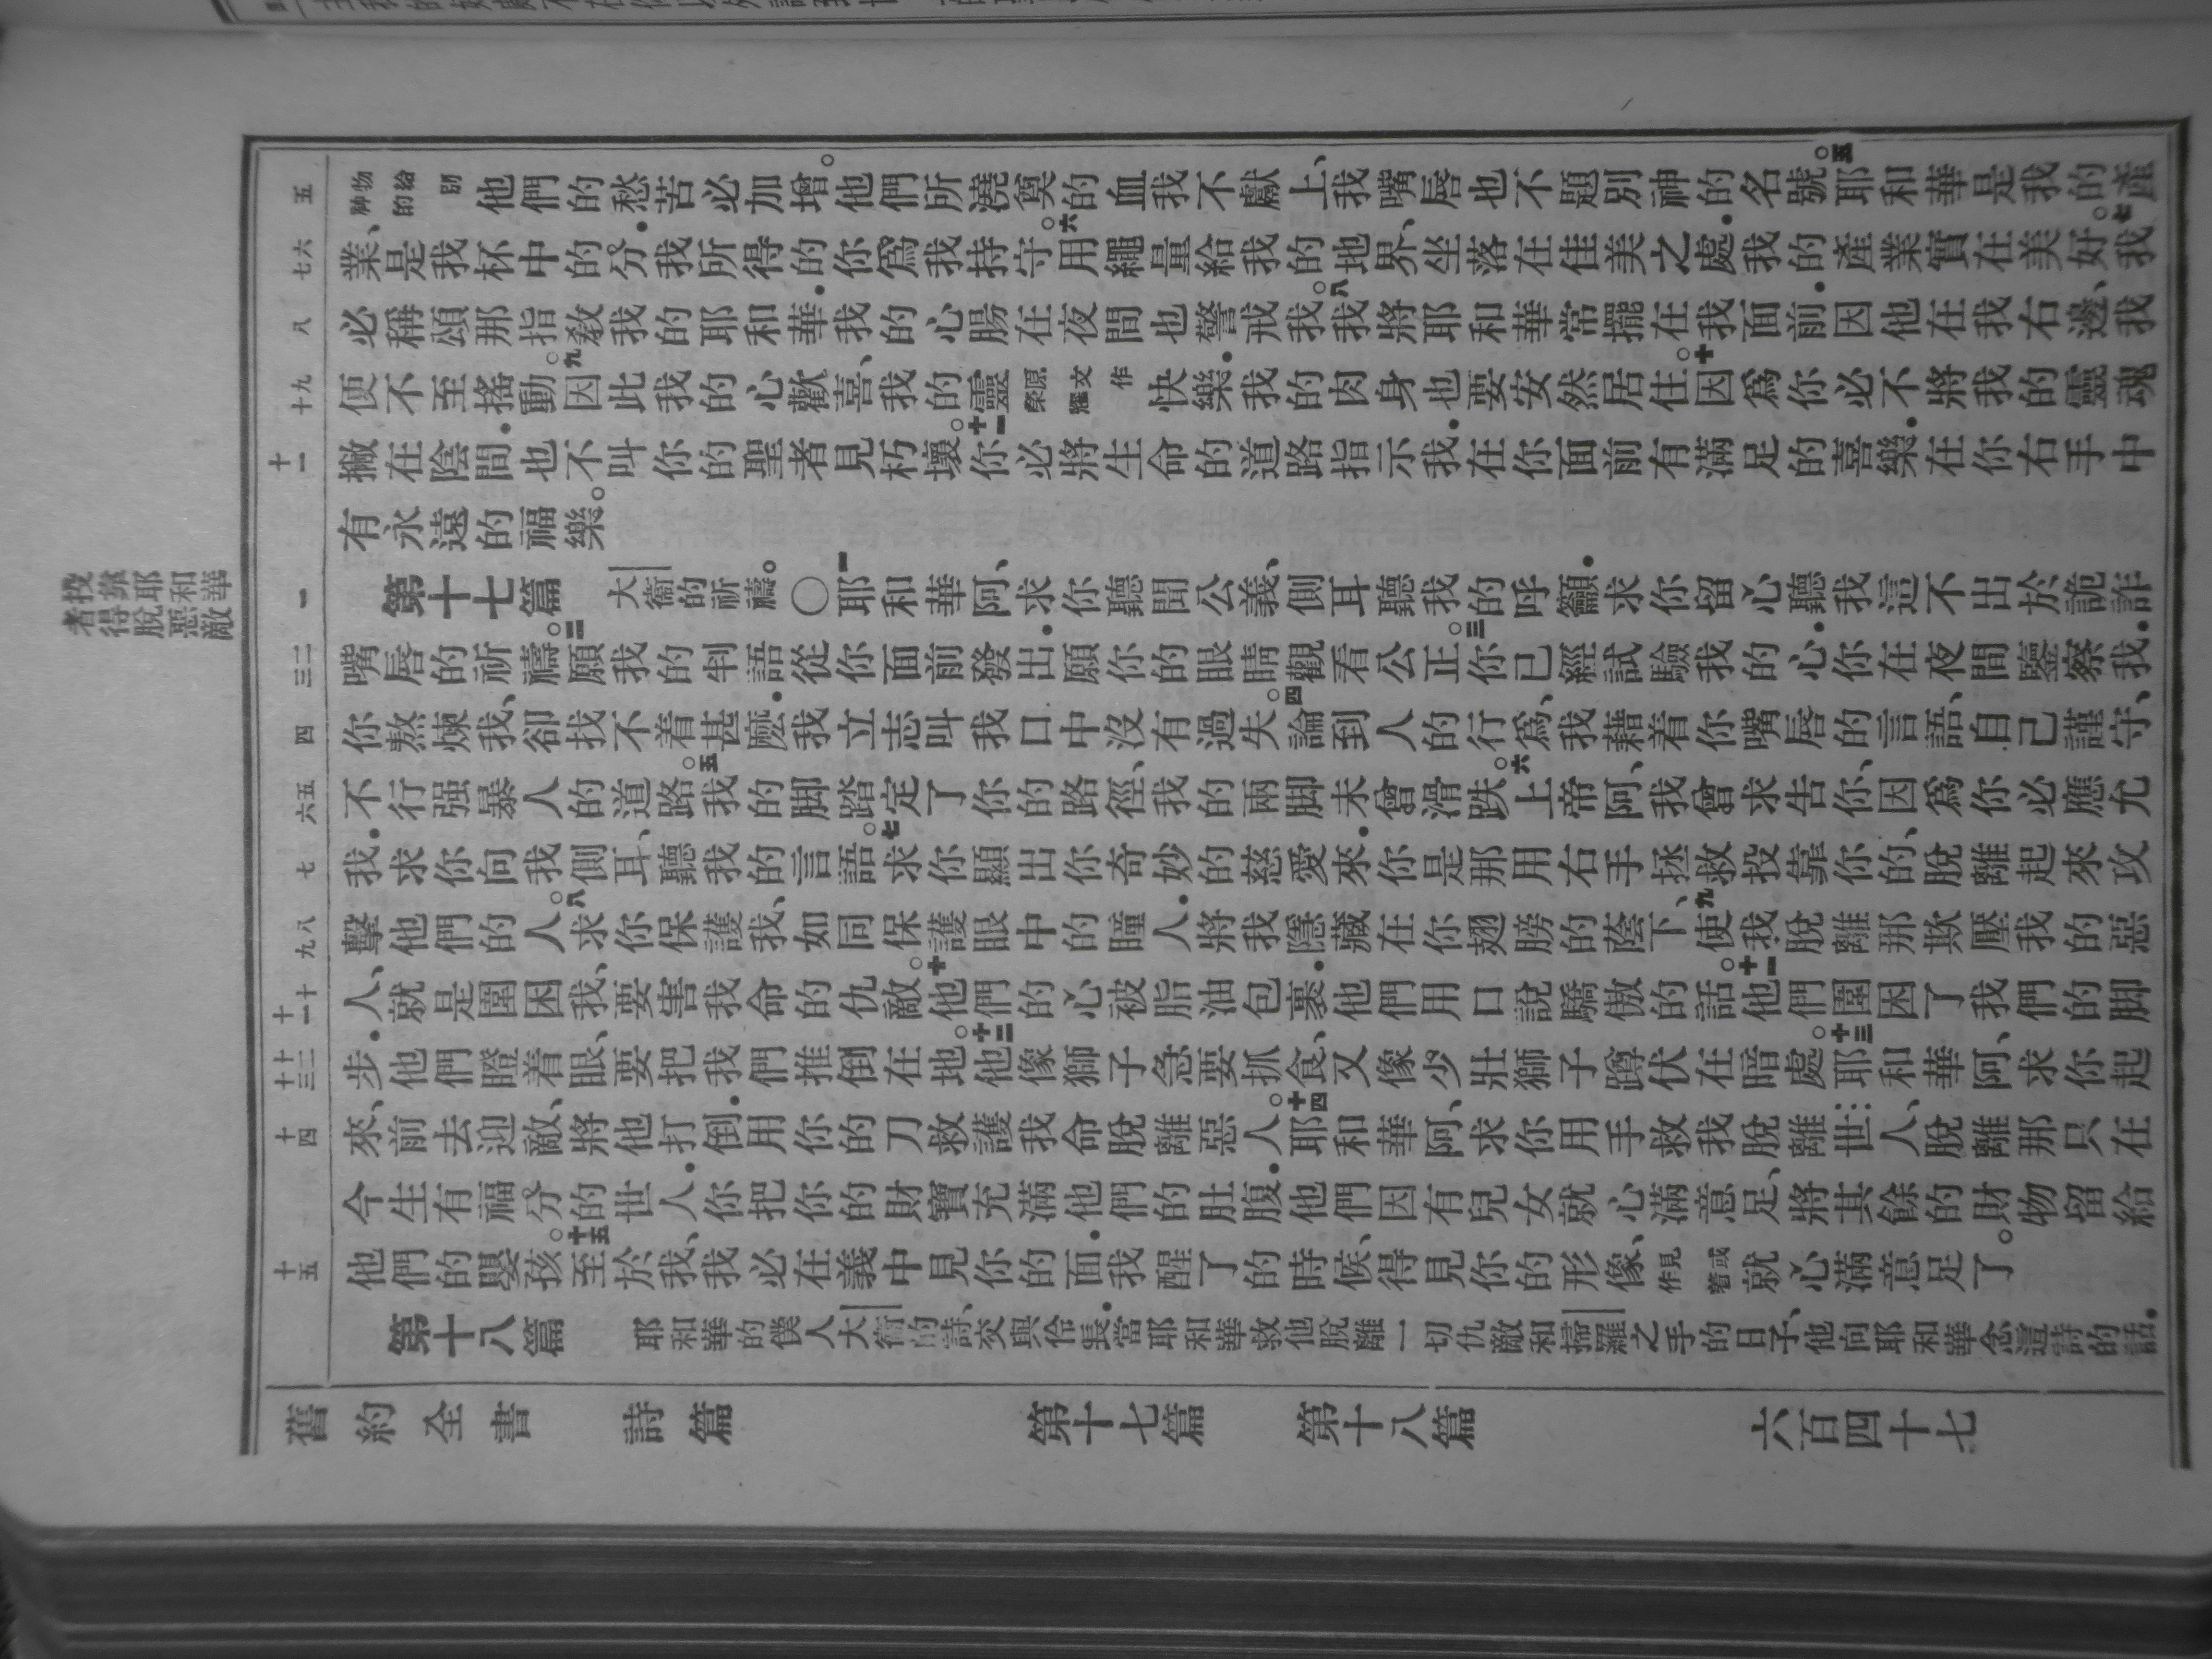 物給別神的他們的愁苦必加增。他們所澆奠的血我不獻上、我嘴唇也不題別神的名號。五耶和華是我的產
業、是我杯中的分．我所得的你爲我持守。六用繩量給我的地界、坐落在佳美之處．我的產業實在美好。七我
必稱頌那指教我的耶和華．我的心腸在夜間也警戒我。八我將耶和華常擺在我面前．因他在我右邊、我
便不至搖動。九因此我的心歡喜、我的靈原文作榮耀快樂．我的肉身也要安然居住。十因爲你必不將我的靈魂
撇在陰間．也不叫你的聖者見朽壞。十一你必將生命的道路指示我．在你面前有滿足的喜樂．在你右手中
有永遠的福樂。
第十七篇 大衛的祈禱。〇一耶和華阿、求你聽聞公義、側耳聽我的呼籲．求你留心聽我這不出於詭詐
嘴唇的祈禱。二願我的判語從你面前發出．願你的眼睛觀看公正。三你已經試驗我的心．你在夜間鑒察我．
你熬煉我、卻找不着甚麽．我立志叫我口中沒有過失。四論到人的行爲、我藉着你嘴唇的言語、自己謹守、
不行强暴人的道路。五我的脚踏定了你的路徑、我的兩脚未曾滑跌。六上帝阿、我曾求告你、因爲你必應允
我．求你向我側耳、聽我的言語。七求你顯出你奇妙的慈愛來．你是那用右手拯救投靠你的、脫離起來攻
擊他們的人。八求你保護我、如同保護眼中的瞳人．將我隱藏在你翅膀的蔭下、九使我脫離那欺壓我的惡
人、就是圍困我、要害我命的仇敵。十他們的心被脂油包裹．他們用口說驕傲的話。十一他們圍困了我們的脚
步．他們瞪着眼、要把我們推倒在地。十二他像獅子急要抓食、又像少壯獅子蹲伏在暗處。十三耶和華阿、求你起
來、前去迎敵、將他打倒．用你的刀救護我命脫離惡人。十四耶和華阿、求你用手救我脫離世人、脫離那只在
今生有福分的世人．你把你的財寶充滿他們的肚腹．他們因有兒女就心滿意足、將其餘的財物留給
他們的嬰孩。十五至於我、我必在義中見你的面．我醒了的時候、得見你的形像、或作見着就心滿意足了。
第十八篇 耶和華的僕人大衛的詩、交與伶長．當耶和華救他脫離一切仇敵和掃羅之手的日子、他向耶和華念這詩的話．
投靠耶和華
者得脫惡敵
五
六
七
八
九
十
十一
一
二
三
四
五
六
七
八
九
十
十一
十二
十三
十四
十五
舊約全書 詩篇 第十七篇 第十八篇 六百四十七